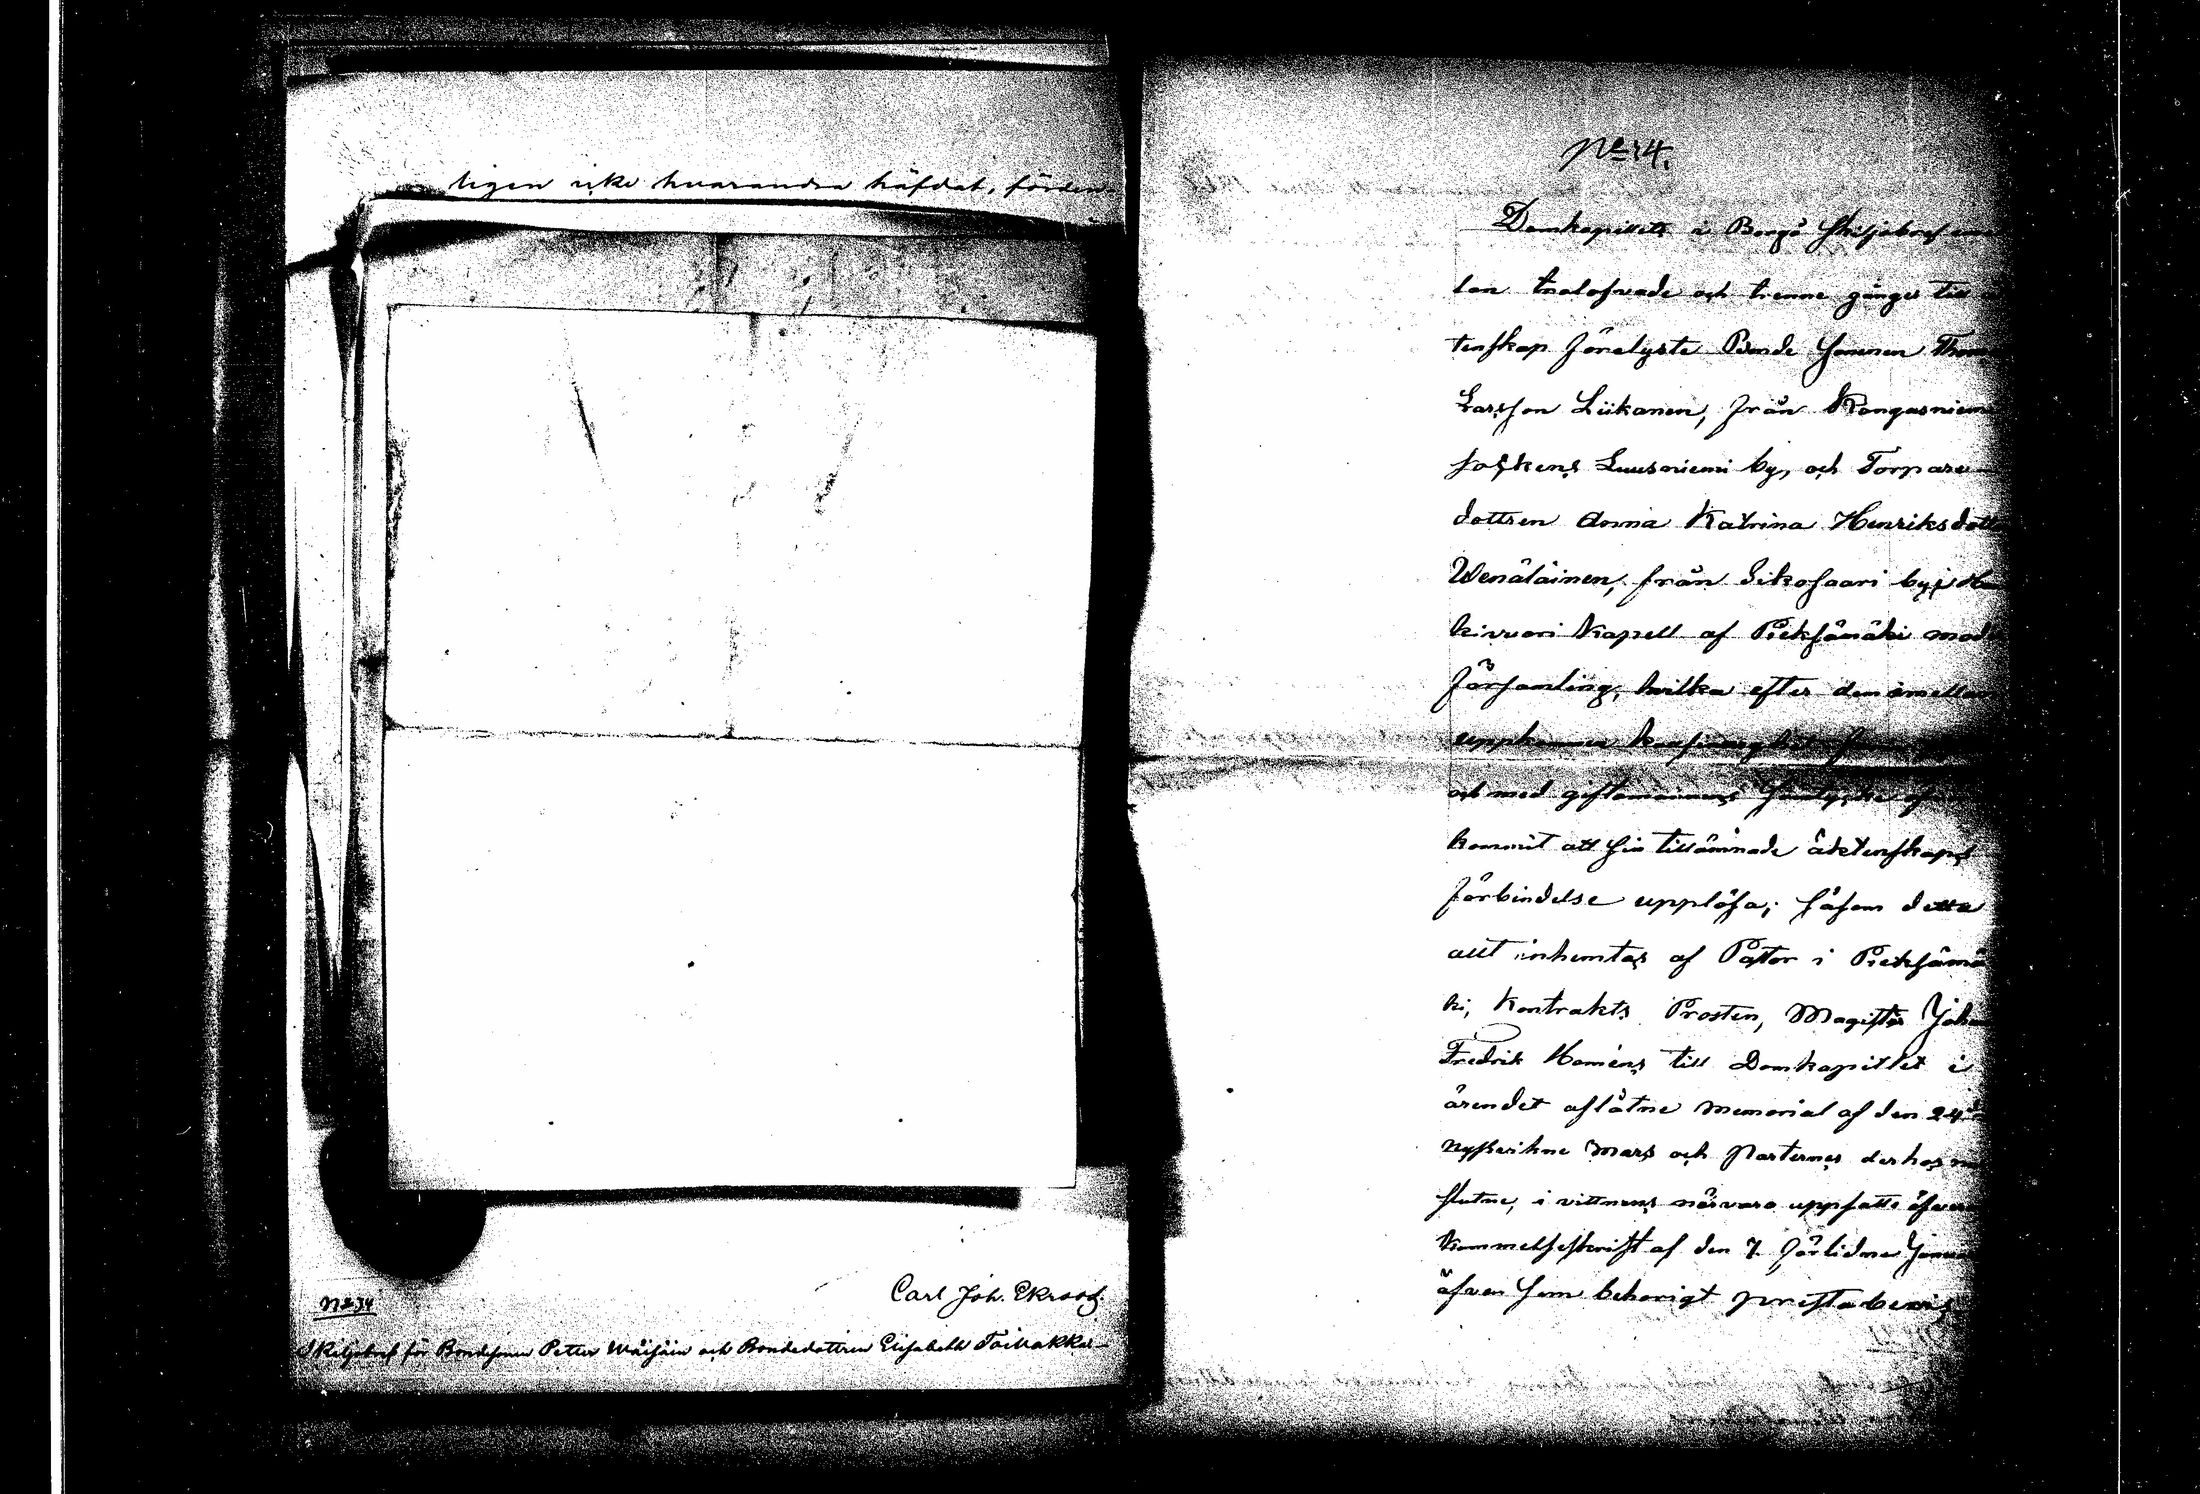 ligen icke hvarandra häfdat, förden
Carl Joh. Ekroos
No 34
Skiljobref för Bondesonen Petter Wäisäin och Bondedottren Elisabeth Taivakka
No 14.
Domkapitlets i Borgå Skiljobref
lan trolofvade och trenne gånger till
tenskap förelyste Bonde Sonen Thom
Larsson Liikanen, från Kangasniemi
Sockens Luusniemi by, och Torpare
dottren Anna Katrina Henriksdott
Wenäläinen, från Sikosaari by, i Hau
kivuori Kapell af Pieksämäki mod
församling, hvilka efter dem emellan
uppkommen
och med giftomannens samtycke
kommit att sin tillämnade äktenskaps
förbindelse upplösa; såsom detta
allt inhemtas af Pastor i Pieksämä
ki, Kontrakts Prosten, Magister Joha
Fredrik Homéns till Domkapitlet i
ärendet aflåtne memorial af den 24de
nyssvikne Mars och Parternes derhos
slutne, i vittnens närvaro uppsatte öfver
kommelseskrift af den 7 förlidne Janua
äfven som behörigt prestabevis